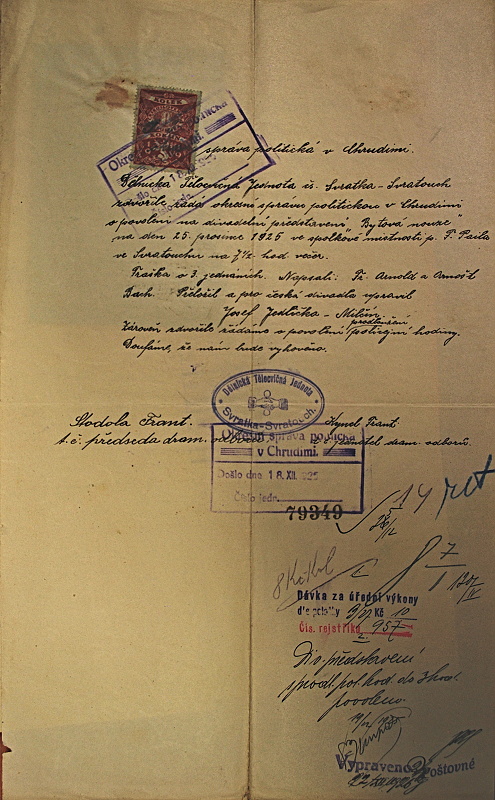 KOLEK
Okresní správa politická v Chrudimi.
Dělnická Tělocvičná Jednota čs. Svratka - Svratouch
zdvořile žádá okresní správu politickou v Chrudimi
o povolení na divadelní představení „Bytová nouze"
na den 25. prosince 1925 ve spolkové místnosti p. F. Pavla
ve Svratouchu na 7½ hod večer.
Fraška o 3. jednáních. Napsali: Fr. Arnold a Arnošt
Bach. Přeložil a pro česká divadla upravil
Josef Jedlička - Milčín
prodloužení
Zároveň zdvořile žádáme o povolení policejní hodiny.
Doufáme, že nám bude vyhověno.
Dělnická Tělocvičná Jednota
Svratka-Svratouch.
Stodola Frant.
t.č. předseda dram.
Frant
jednatel dram. odboru.
Okresní správa politická
v Chrudimi.
Došlo dne 18. XII. 1925
Číslo jedn.
79349
Dávka za úřední výkony
dle položky Kč 10
Čís. rejstříku 957
Div. představení
pol. hod. do 3 hod.
povoleno.
Vypraveno poštovné